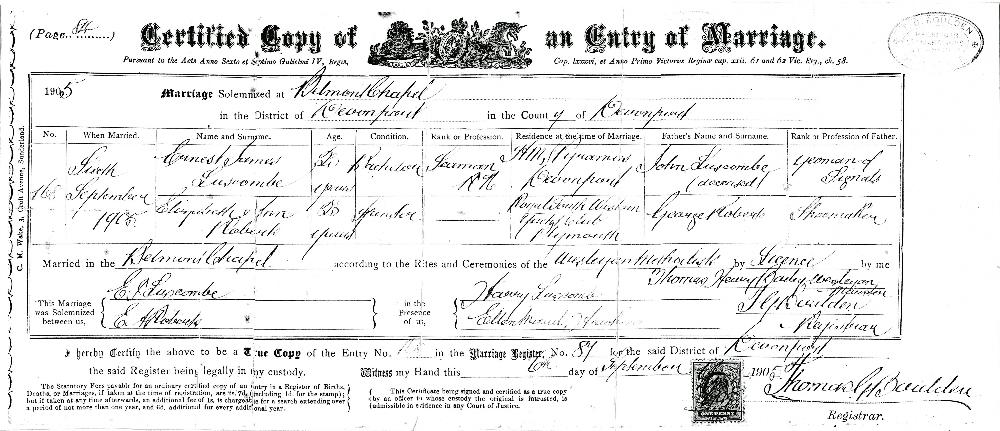 (Page 84)
Certified Copy of an Entry of Marriage.
Pursuant to the Acts Anno Sexto et Septimo Gulielmi IV. Regis, Cap. lxxxvi, et Anno Primo Victoriæ Reginæ cap. xxii. 61 and 62 Vic. Reg., ch. 58.
1905 Marriage Solemnized at Belmont Chapel
in the District of Devonport in the County of Devonport
No. When Married. Name and Surname. Age. Condition. Rank or Profession. Residence at the time of Marriage. Father's Name and Surname. Rank or Profession of Father.
Sixth Ernest James 26 Bachelor H.M.S. Devonport John Luscombe yeoman of
September Luscombe years R.N. Devonport (deceased) Signals
1905 Elizabeth Ann Spinster Royal South Western George Roberts Shoemaker
Roberts years Yacht Club
Plymouth
Married in the Belmont Chapel according to the Rites and Ceremonies of the Wesleyan Methodists by Licence by me
This Marriage was Solemnized between us,
E. J. Luscombe
E. A. Roberts
in the Presence of us,
Harry Luscombe
Ellen
Thomas Henry Wesleyan Minister
Registrar
I hereby Certify the above to be a True Copy of the Entry No. in the Marriage Register, No. 87 for the said District of Devonport
the said Register being legally in my custody. Witness my Hand this 6th day of September 1905
The Statutory Fees payable for an ordinary certified copy of an entry in a Register of Births,
Deaths, or Marriages, if taken at the time of registration, are 2s. 7d. (including 1d. for the stamp);
but if taken at any time afterwards, an additional fee of 1s. is chargeable for a search extending over
a period of not more than one year, and 6d. additional for every additional year.
This Certificate being signed and certified as a true copy
by an officer to whose custody the original is intrusted, is
admissible in evidence in any Court of Justice.
ONE PENNY
Registrar.
C. M. Wake, 3, Croft Avenue, Sunderland.